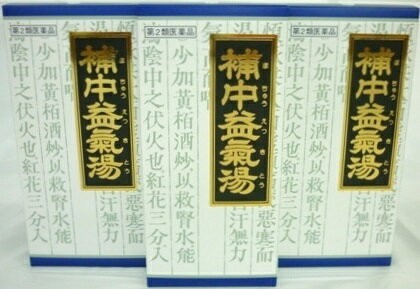 第2類医薬品
補中益氣湯
ほちゅうえつきとう
惡寒而
汗無力
少加黃栢酒炒以救腎水能
陰中之伏火也紅花三分入
第2類医薬品
補中益氣湯
ほちゅうえつきとう
惡寒而
汗無力
少加黃栢酒炒以救腎水能
陰中之伏火也紅花三分入
第2類医薬品
補中益氣湯
ほちゅうえつきとう
惡寒而
汗無力
少加黃栢酒炒以救腎水能
陰中之伏火也紅花三分入